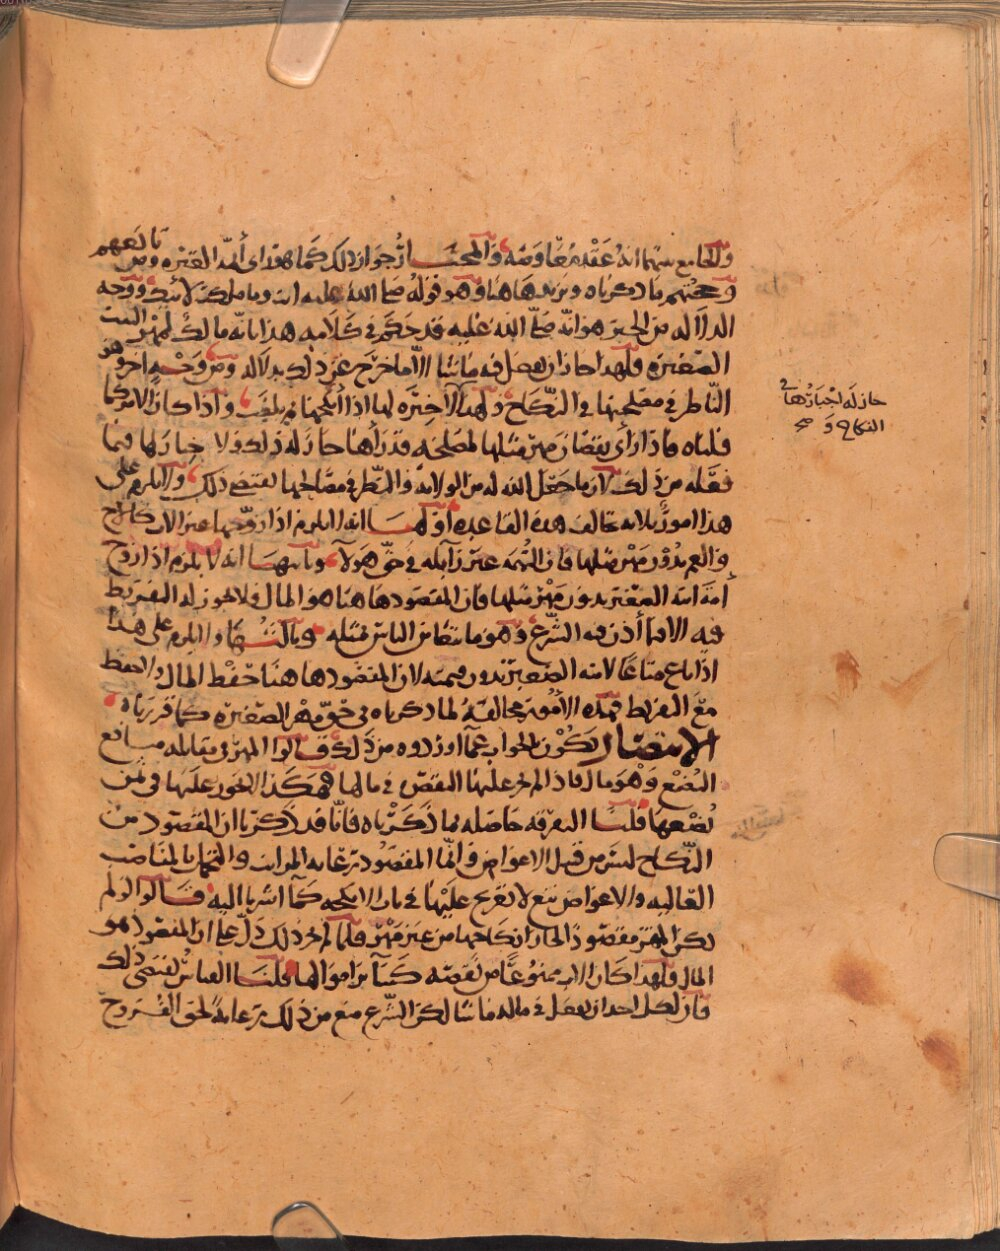 والجامع بينهما انه عقد معاوضه والمختار جواز ذلك كما هو راى أئمة العتره ومن تابعهم
وحجتهم ما ذكرناه ونزيدها هنا وهو قوله صلى الله عليه انت وما ملكت لابيك ووجه
الدلاله من الخبر هو انه صلى الله عليه قد حكم في كلامه هذا بانه مالك لمهر البنت
الصغيره فلهذا جاز ان يفعل فيه ما شا الا ما خرج عن ذلك بدلاله ومن وجه اخر وهو
الناظر في مصلحتها في النكاح ولهذا لا خيره لها اذا أنكحها ثم بلغت واذا كان الامر كما
قلناه فاذا رأى نقصان مهر مثلها لمصلحه قد رأها جاز له ذلك ولا خيار لها فيما
فعله من ذلك لان ما جعل الله له من الولايه والنظر في مصالحها يقتضي ذلك ولا يلزم على
هذا امور ثلاثه تخالف هذه القاعده اولها انه لا يلزم اذا زوجها غير الاب كالاخ
والعم بدون مهر مثلها فان التهمه غير زايله في حق هولآ وثانيها انه لا يلزم اذا زوج
أمة ابنه الصغير بدون مهر مثلها فان المقصود هاهنا هو المال فلا يجوز له التفريط
فيه الا ما أذن فيه الشرع وهو ما يتغابن الناس بمثله وثالثها ولا يلزم على هذا
اذا باع متاعا لابنه الصغير بدون قيمته لان المقصود هاهنا حفظ المال والحفظ
مع التفريط فهذه الأمور مخالفة لما ذكرناه في حق مهر الصغيره كما قررناه
الانتصار يكون الجواب عما اوردوه من ذلك قالوا المهر في مقابله منافع
البضع وهو مال فاذا لم يجز عليها النقص في مالها فهكذا لا يجوز عليها في ثمن
بضعها قلنا التفرقه حاصله بما ذكرناه فانا قد ذكرنا ان المقصود من
النكاح ليس من قبيل الاعواض وانما المقصود رعايه المراتب والتجمل بالمناصب
العاليه والاعواض تبع لا تعريج عليها في باب الانكحه كما اشرنا اليه قالوا لو لم
يكن المهر مقصودا لجاز انكاحها من غير مهر فلما لم يجز ذلك دل على ان المقصود هو
المال فلهذا كان الاب ممنوعا من نقصه كسآئر اموالها قلنا القياس يقتضي ذلك
فان لكل احد ان يفعل في ماله ما شا لكن الشرع منع من ذلك رعاية لحق الفروج
جاز له اجبارها في
النكاح و صح